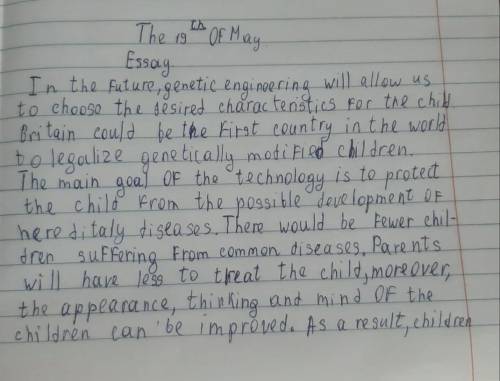 The 19th Of May
Essay
In the future, genetic engineering will allow us
to choose the desired characteristics for the child
Britain could be the first country in the world
to legalize genetically modified children.
The main goal of the technology is to protect
the child from the possible development of
hereditaly diseases. There would be fewer chil-
dren suffering from common diseases. Parents
will have less to treat the child, moreover,
the appearance, thinking and mind of the
children can be improved. As a result, children